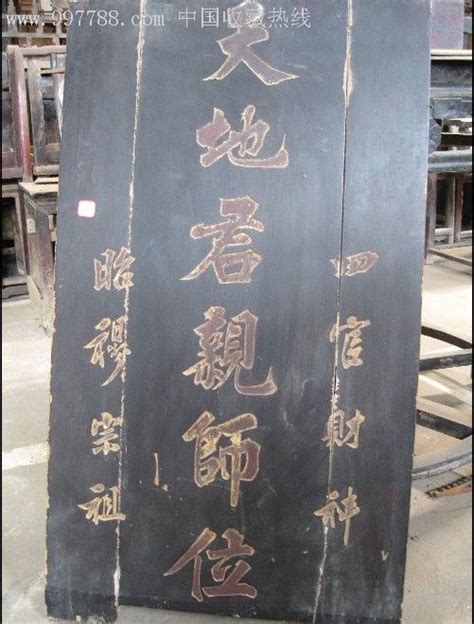 www.997788.com 中国收藏热线
四官财神
天地君親師位
昭穆宗祖